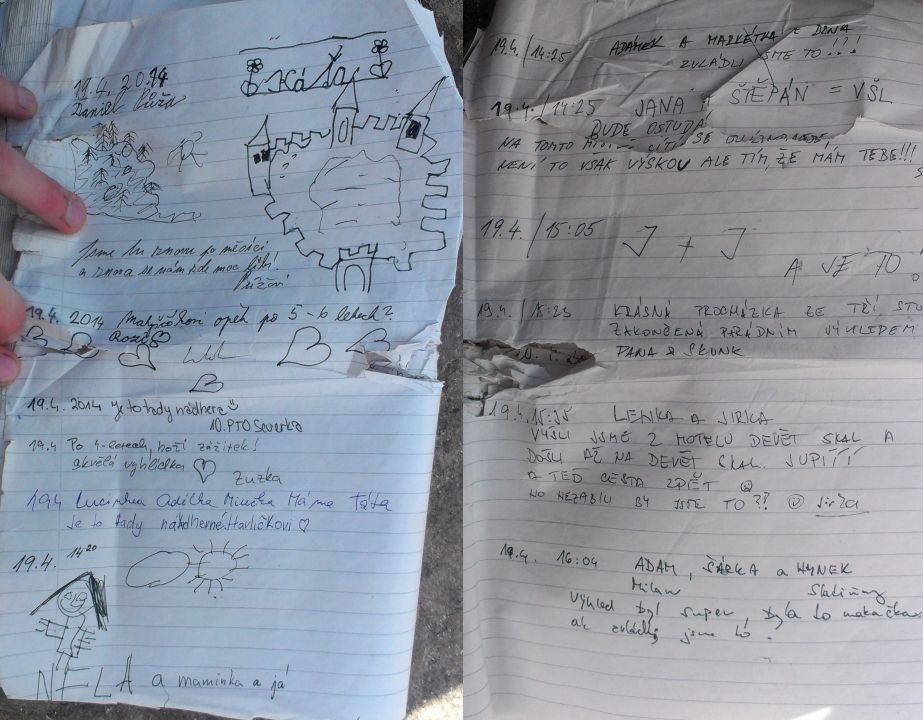 19.4.2014
Daniel Růža
Káťa
Jsme tu znovu po měsíci
a znova se nám zde moc líbí!
Růžovi
19.4. 2014 opět po 5-6 letech?
19.4. 2014 Je to tady nádhera
10. PTO Severka
19.4 Po 4-letech, boží zážitek!
skvělá vyhlídka
Zuzka
19.4 Lucinka Adélka Máma Táta
je to tady nádherné. Havlíčkovi
19.4. 14 20
NELA a maminka a já
19.4. / 14:25 ADÁMEK A MARKÉTKA Z BRNA
ZVLÁDLI JSME TO!!!
19.4. / 14:25 JANA A ŠTĚPÁN = VŠL
BUDE OSTUDA
NA TOMTO SE
NENÍ TO VŠAK VÝŠKOU ALE TÍM, ŽE MÁM TEBE!!!
19.4. / 15:05 J + J
A JE TO!
19.4. / 15:25 KRÁSNÁ PROCHÁZKA ZE TŘÍ STU
ZAKONČENÁ PARÁDNÍM VÝHLEDEM
PANA & SKUNK
19.4. 15:35 LENKA A JIRKA
VYŠLI JSME Z HOTELU DEVĚT SKAL A
DOŠLI AŽ NA DEVĚT SKAL. JUPÍÍÍ
A TEĎ CESTA ZPĚT
NO NEZABILI BY JSTE TO?? Jirka
19.4. 16:04 ADAM, ŠÁRKA a HYNEK
Milan
Výhled byl super, byla to makačka
ale zvládli jsme to!